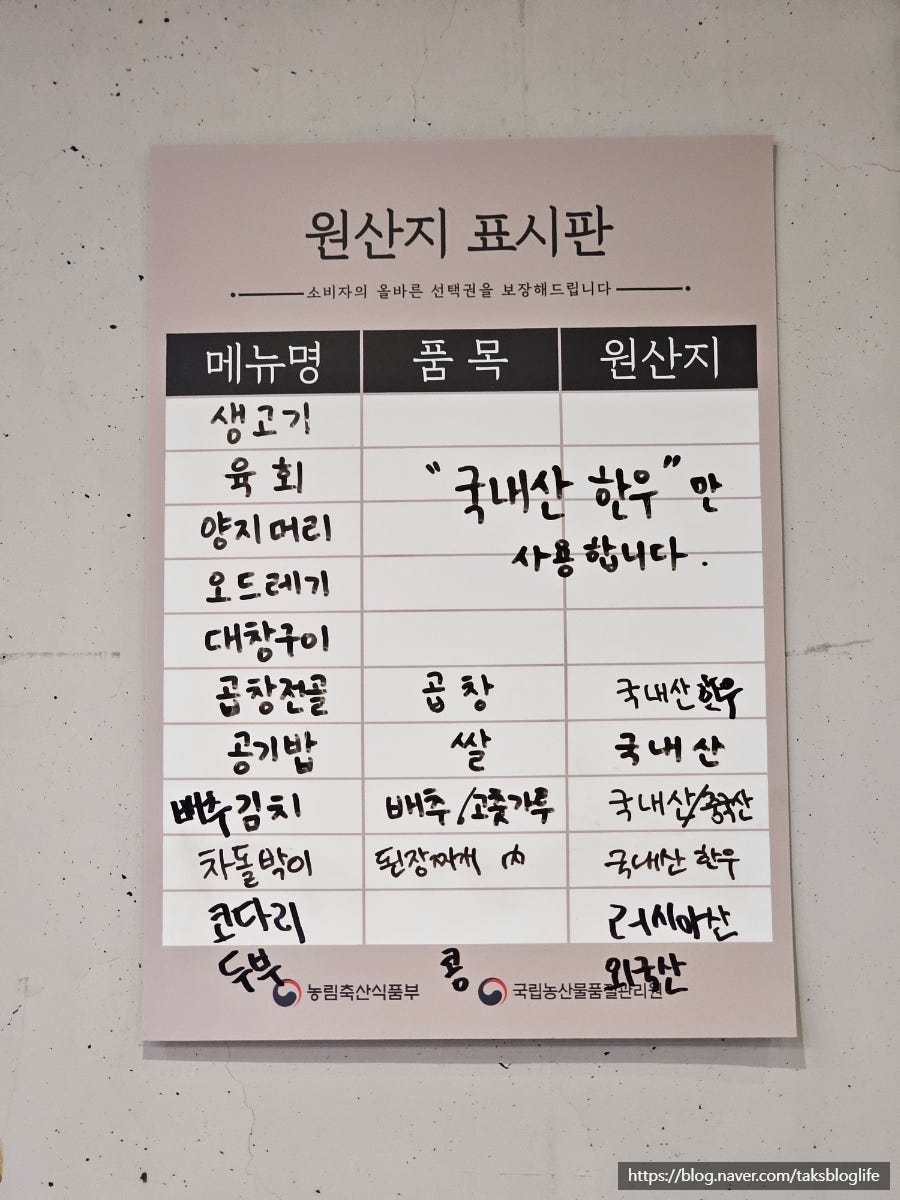 원산지 표시판
소비자의 올바른 선택권을 보장해드립니다
메뉴명 품목 원산지
생고기
육회
"국내산 한우"만
양지머리
사용합니다.
오드레기
대창구이
곱창전골 곱창 국내산한우
공기밥 쌀 국내산
배추김치 배추/고춧가루 국내산/중국산
차돌박이 된장찌개 內 국내산 한우
코다리 러시아산
두부 콩 외국산
농림축산식품부 국립농산물품질관리원
https://blog.naver.com/taksbloglife